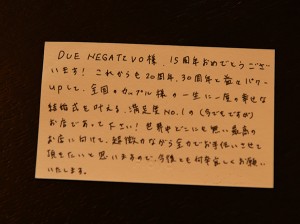 DUE NEGATIVO様、15周年おめでとうござい
ます！これからも20周年、30周年と益々パワー
UPして、全国のカップル様の一生に一度の幸せな
結婚式を叶える、満足度No.1の(今でもですが)
お店であって下さい！世界中どこにも無い最高の
お店に向けて、超微力ながら全力でお手伝いさせて
頂きたいと思いますので、今後とも何卒宜しくお願い
いたします。